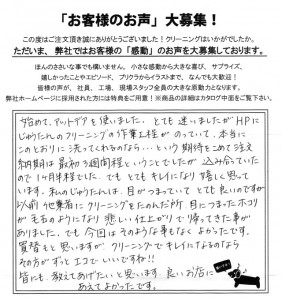 「お客様のお声」大募集！
この度はご注文頂き誠にありがとうございました！クリーニングはいかがでしたか。
ただいま、弊社ではお客様の「感動」のお声を大募集しております。
ほんのささいな事でも構いません。小さな感動から大きな喜び、サプライズ、
嬉しかったことやエピソード、プリクラやイラストまで、なんでも大歓迎！
皆様の声が、社員、工場、現場スタッフ全員の大きな原動力となります。
弊社ホームページに採用された方には特典をご用意！※商品の詳細はカタログ中面をご覧下さい。
始めて、ネットでクリを使いました。とても迷いましたがHPに
じゅうたんのクリーニングの作業工程がのっていて、本当に
このとおりに洗ってくれるのなら…という期待をこめて注文
納期は最初3週間程ということでしたが込み合っていた
ので1ヶ月半程でした。でもとてもキレイになり嬉しく思って
います。私のじゅうたんは、目がつまっていてとても良いのですが
以前他業者にクリーニングをたのんだ所目につまったホコリ
が毛玉のようになり悲しい仕上がりで帰ってきた事が
ありました。でも今回はそのような事もなくよかったです。
買替えをと思いますがクリーニングでキレイになるのなら
その方がずっとエコでいいですね!!
皆にも、教えてあげたいと思います。良いお店に
あえてよかったです。